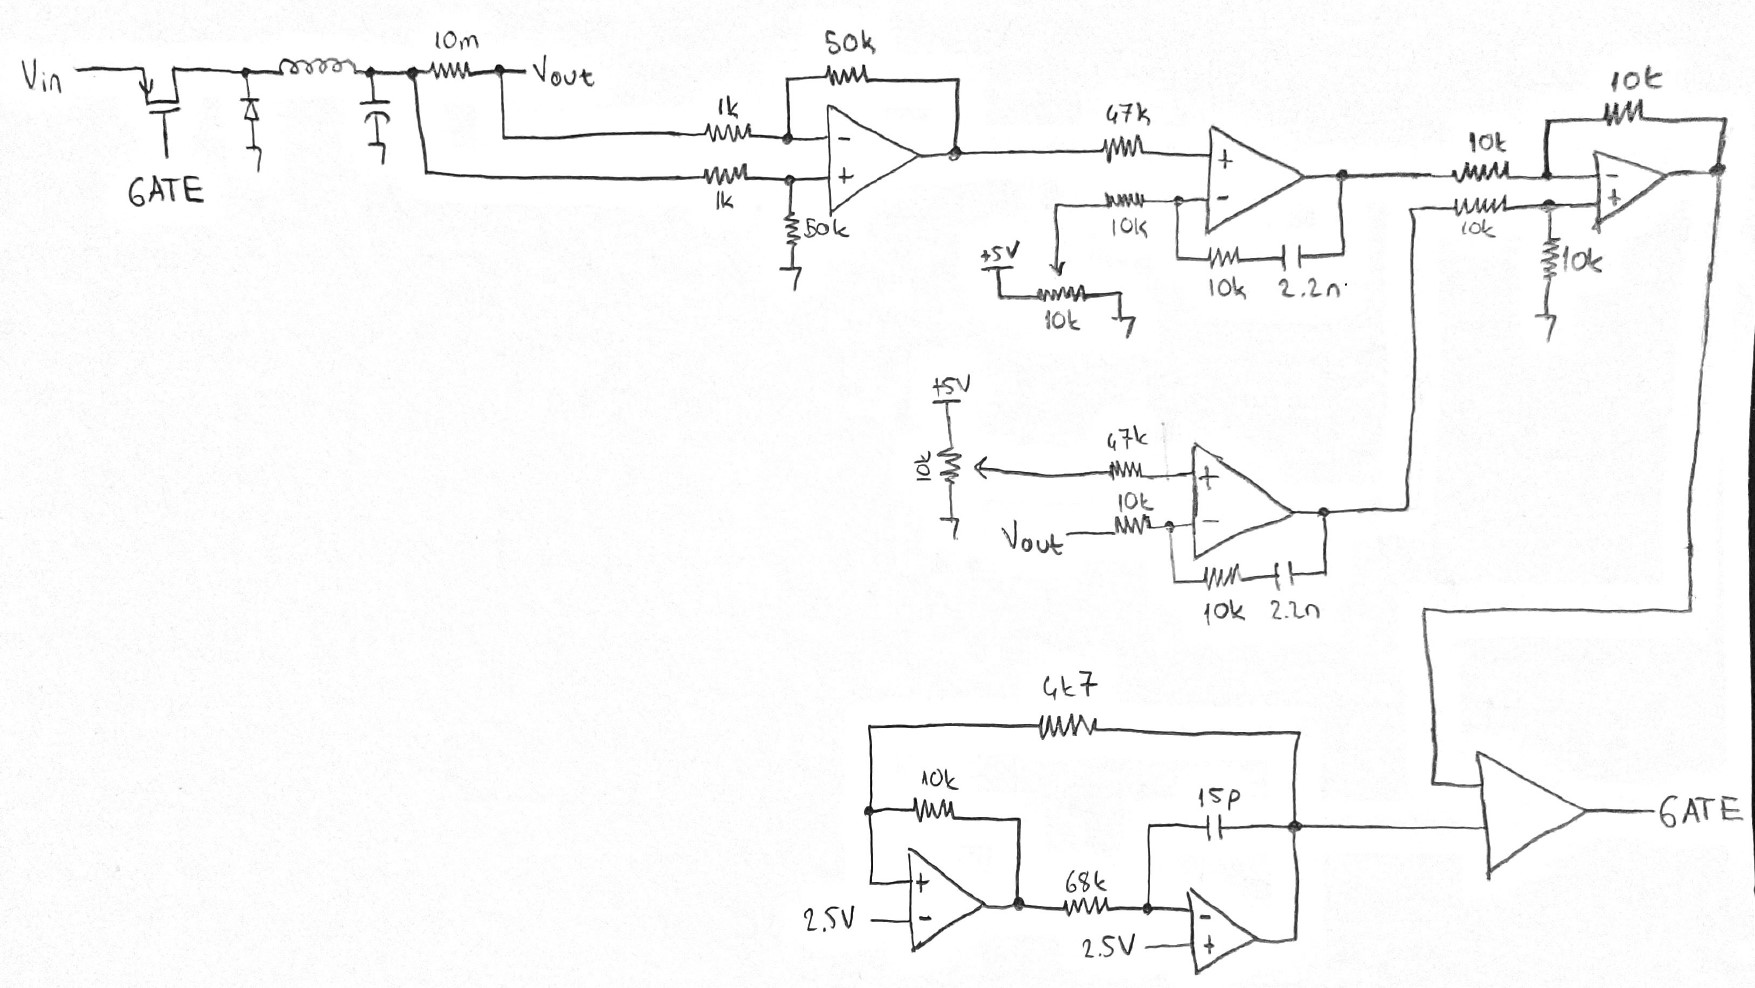 Vin
GATE
10m
Vout
1k
1k
50k
50k
47k
10k
+5V
10k
10k 2.2n
10k
10k
10k
10k
+5V
10k
47k
10k
Vout
10k 2.2n
4k7
10k
+
-
2.5V
68k
15p
-
+
2.5V
GATE
-
+
+
-
-
+
+
-